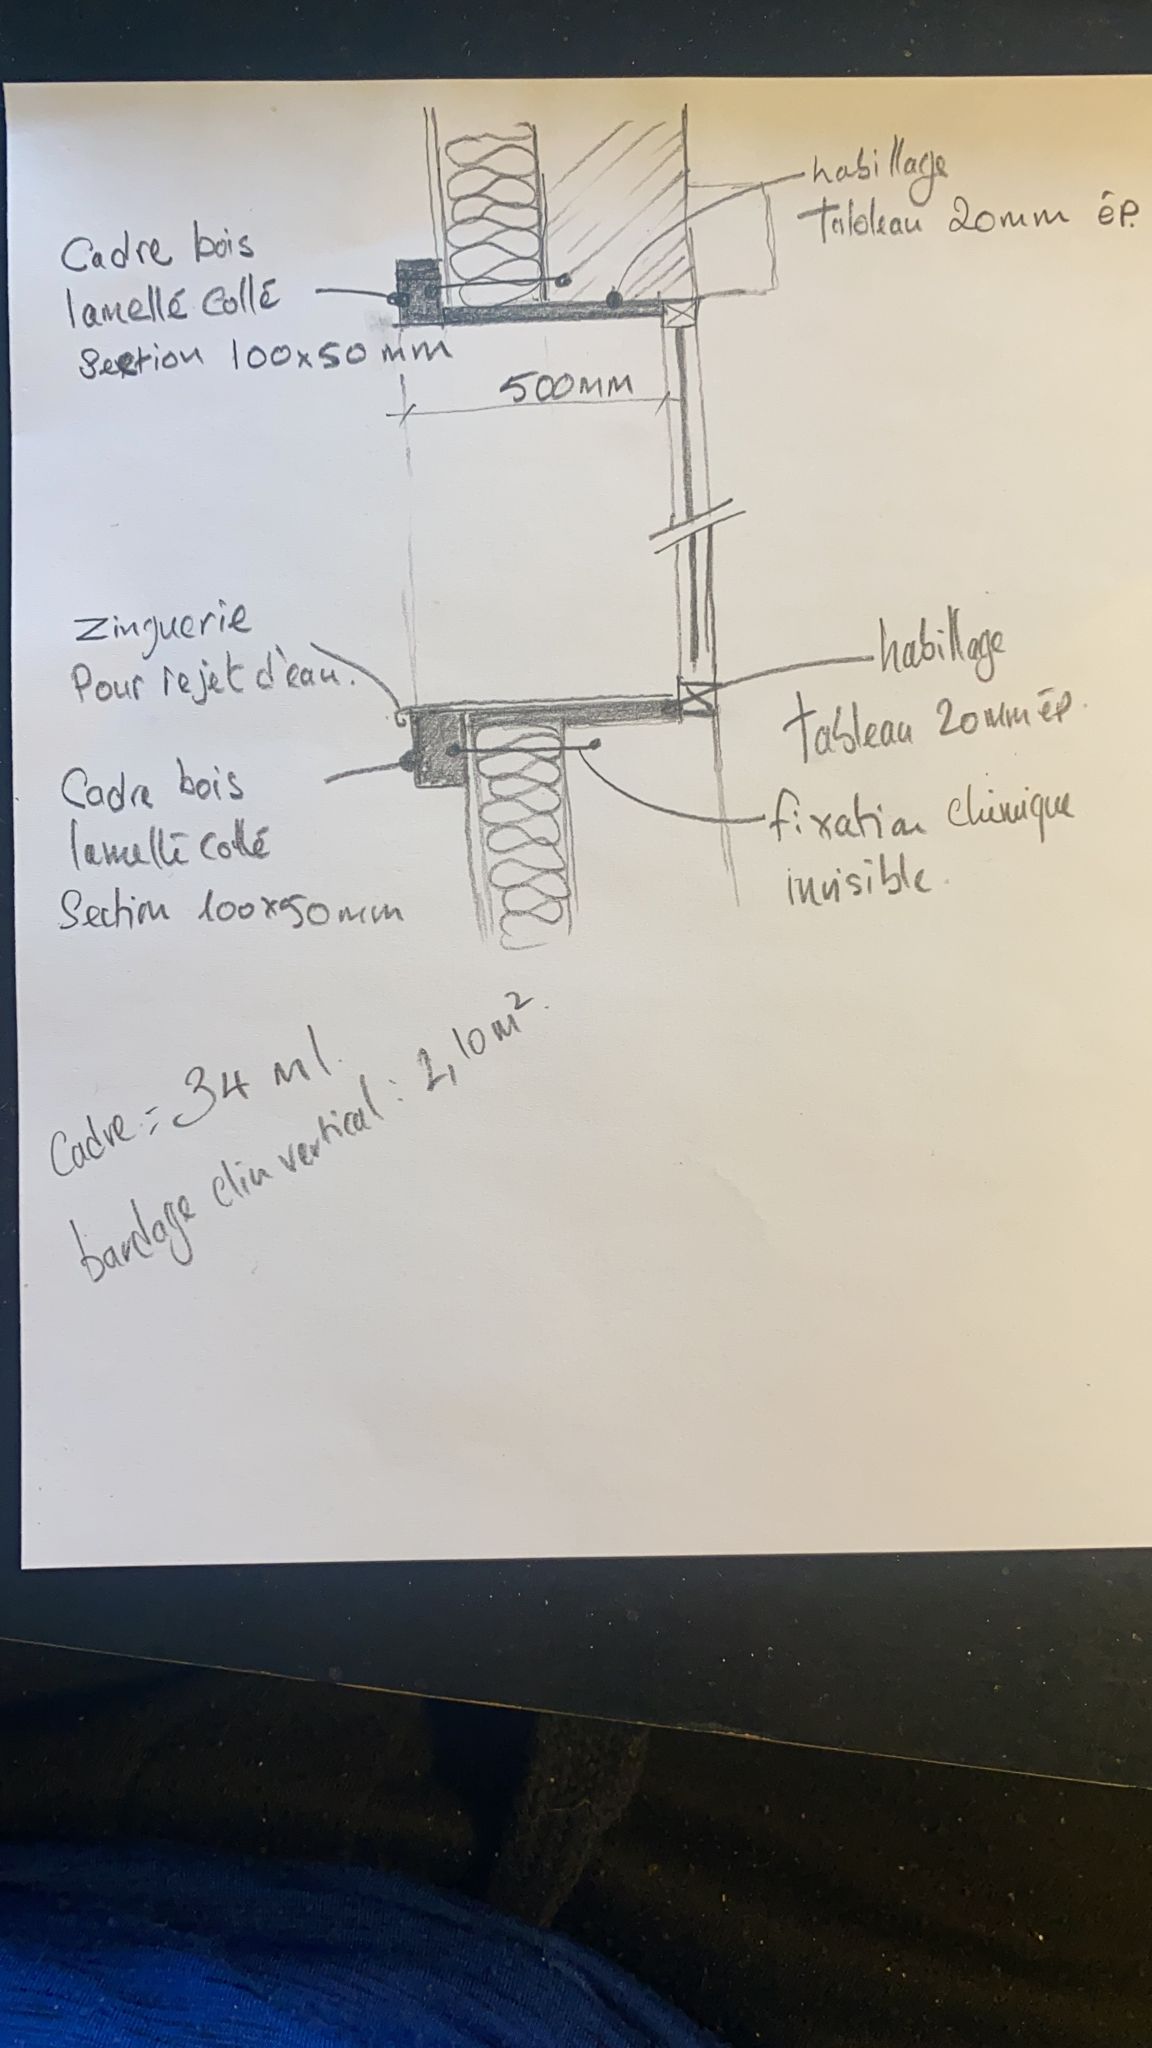 habillage
tableau 20mm ép.
Cadre bois
lamellé collé
Section 100x50mm
500mm
Zinguerie
Pour rejet d'eau.
habillage
tableau 20mm ép.
Cadre bois
lamellé collé
Section 100x50mm
fixation chimique
invisible.
Cadre = 34 ml.
bardage clin vertical : 2,10m².